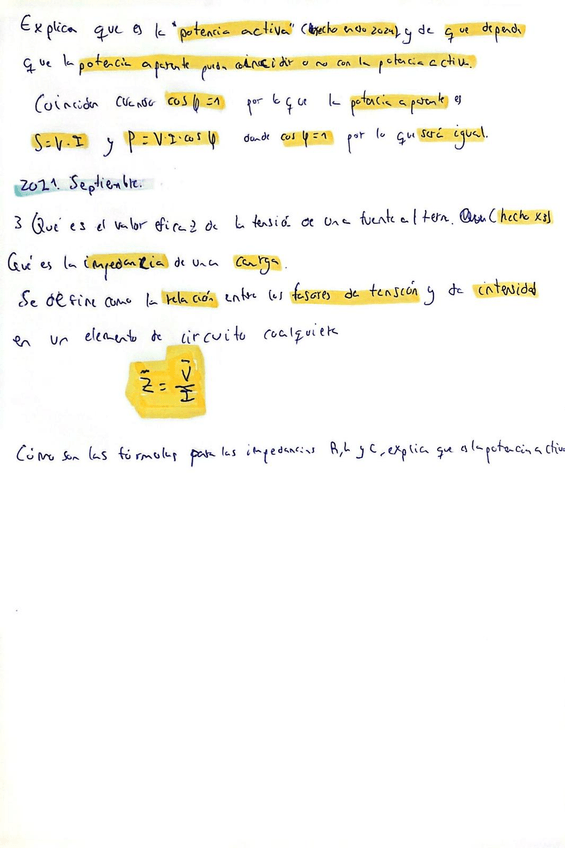 Explica que es la "potencia activa" (hecho enero 2024) y de que depende
que la potencia aparente pueda coincidir o no con la potencia activa.
Coinciden cuando cos φ = 1 por lo que la potencia aparente es
S = V · I y P = V · I · cos φ donde cos φ = 1 por lo que será igual.
2021. Septiembre.
3 Qué es el valor eficaz de la tensión de una fuente altern. (hecho x3)
Qué es la impedancia de una carga.
Se define como la relación entre los fasores de tensión y de intensidad
en un elemento de circuito cualquiera
Z̄ = V̄ / Ī
Cómo son las fórmulas para las impedancias R, L y C, explica que es la potencia activa